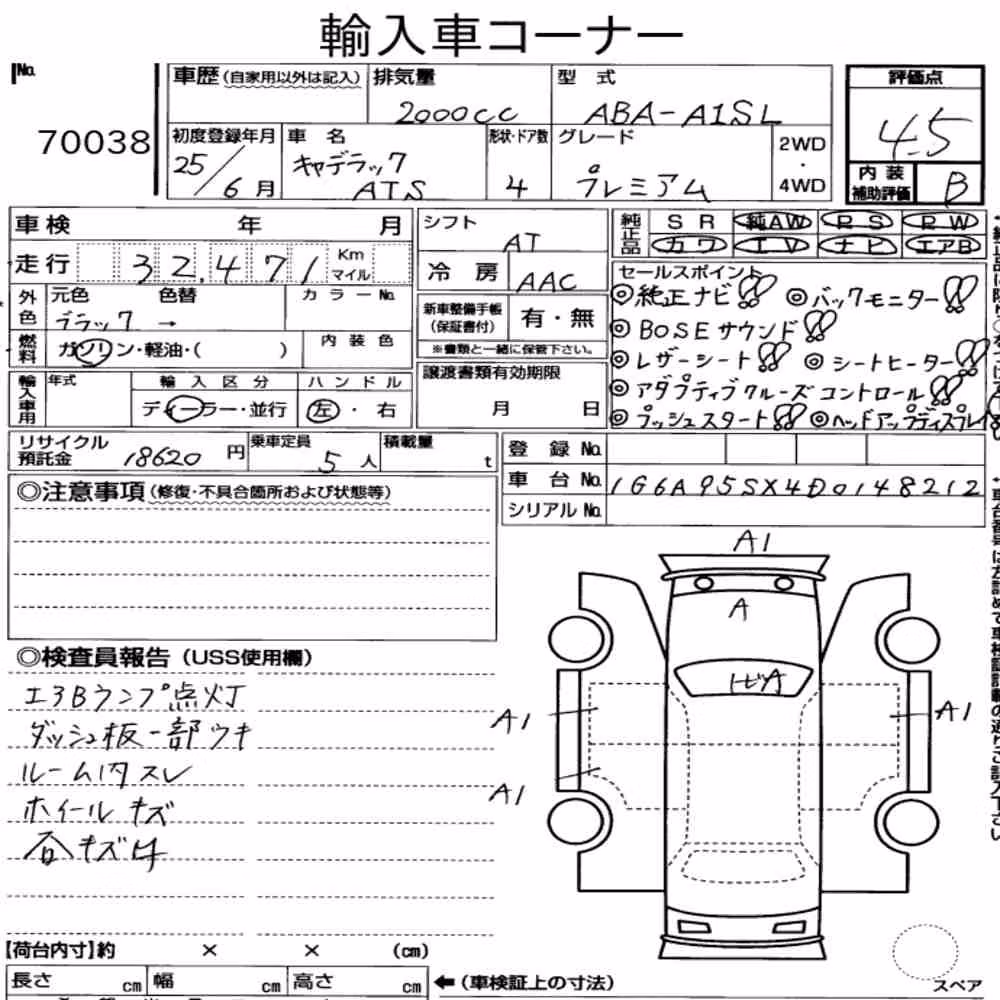 輸入車コーナー
No.
70038
車歴 (自家用以外は記入)
排気量
2000cc
型 式
ABA-A1SL
評価点
4.5
内装補助評価
B
初度登録年月
25/6月
車 名
キャデラック
ATS
形状・ドア数
4
グレード
プレミアム
2WD
・
4WD
車検 年 月
走行 32,471 Km マイル
外色 元色 色替 カラーNo.
ブラック →
燃料 ガソリン・軽油・( )
内装色
輸入車用 年式
輸入区分
ディーラー・並行
ハンドル
左・右
シフト
AT
冷房
AAC
新車整備手帳
(保証書付)
有・無
※書類と一緒に保管下さい。
譲渡書類有効期限
月 日
純正品 SR 純AW RS RW
カワ IV ナビ エアB
セールスポイント
◎純正ナビ!! ◎バックモニター!!
◎BOSEサウンド!!
◎レザーシート!! ◎シートヒーター!!
◎アダプティブクルーズコントロール!!
◎プッシュスタート!! ◎ヘッドアップディスプレイ
リサイクル預託金 18620円
乗車定員 5人
積載量 t
登録No.
車台No. 1G6A95SX4D0148212
シリアルNo.
◎注意事項 (修復・不具合箇所および状態等)
◎検査員報告 (USS使用欄)
エアBランプ点灯
ダッシュ板一部ウキ
ルーム内スレ
ホイールキズ
各キズ
A1
A
トビA
A1
A1
A1
【荷台内寸】約 × × (cm)
長さ cm 幅 cm 高さ cm
← (車検証上の寸法)
スペア